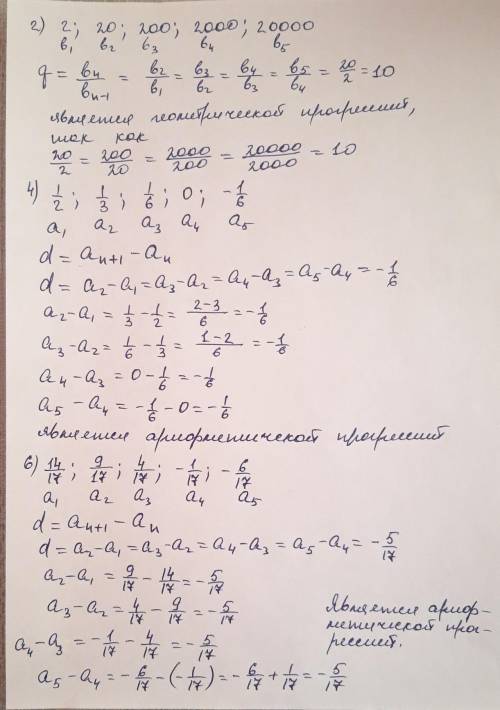 2) 2; 20; 200; 2000; 20000
b₁ b₂ b₃ b₄ b₅
q = bₙ/bₙ₋₁ = b₂/b₁ = b₃/b₂ = b₄/b₃ = b₅/b₄ = 20/2 = 10
является геометрической прогрессией,
так как
20/2 = 200/20 = 2000/200 = 20000/2000 = 10
4) 1/2; 1/3; 1/6; 0; -1/6
a₁ a₂ a₃ a₄ a₅
d = aₙ₊₁ - aₙ
d = a₂-a₁ = a₃-a₂ = a₄-a₃ = a₅-a₄ = -1/6
a₂-a₁ = 1/3 - 1/2 = (2-3)/6 = -1/6
a₃-a₂ = 1/6 - 1/3 = (1-2)/6 = -1/6
a₄-a₃ = 0 - 1/6 = -1/6
a₅-a₄ = -1/6 - 0 = -1/6
является арифметической прогрессией
6) 14/17; 9/17; 4/17; -1/17; -6/17
a₁ a₂ a₃ a₄ a₅
d = aₙ₊₁ - aₙ
d = a₂-a₁ = a₃-a₂ = a₄-a₃ = a₅-a₄ = -5/17
a₂-a₁ = 9/17 - 14/17 = -5/17
a₃-a₂ = 4/17 - 9/17 = -5/17
a₄-a₃ = -1/17 - 4/17 = -5/17
a₅-a₄ = -6/17 - (-1/17) = -6/17 + 1/17 = -5/17
Является ариф-
метической про-
грессией.